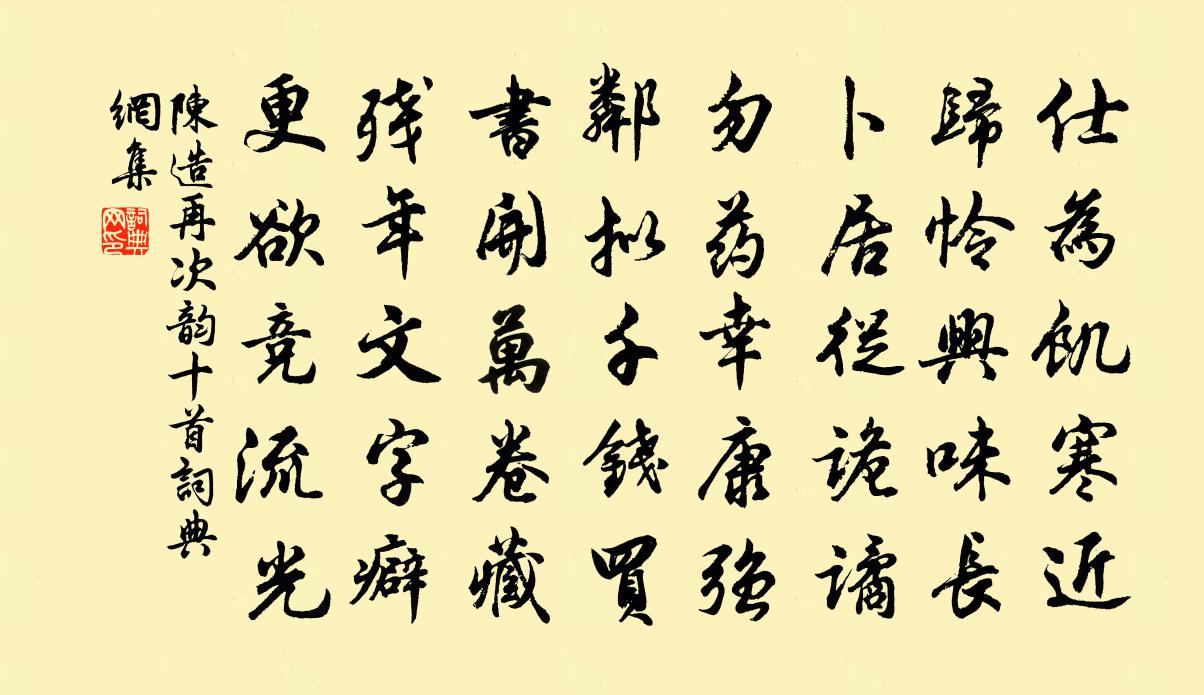 仕為飢寒近
歸怜興味長
卜居從詭譎
勿药幸康強
鄰拟千錢買
書開萬卷藏
残年文字癖
更欲竞流光
陳造再次韵十首詞典
網集
詞典网印